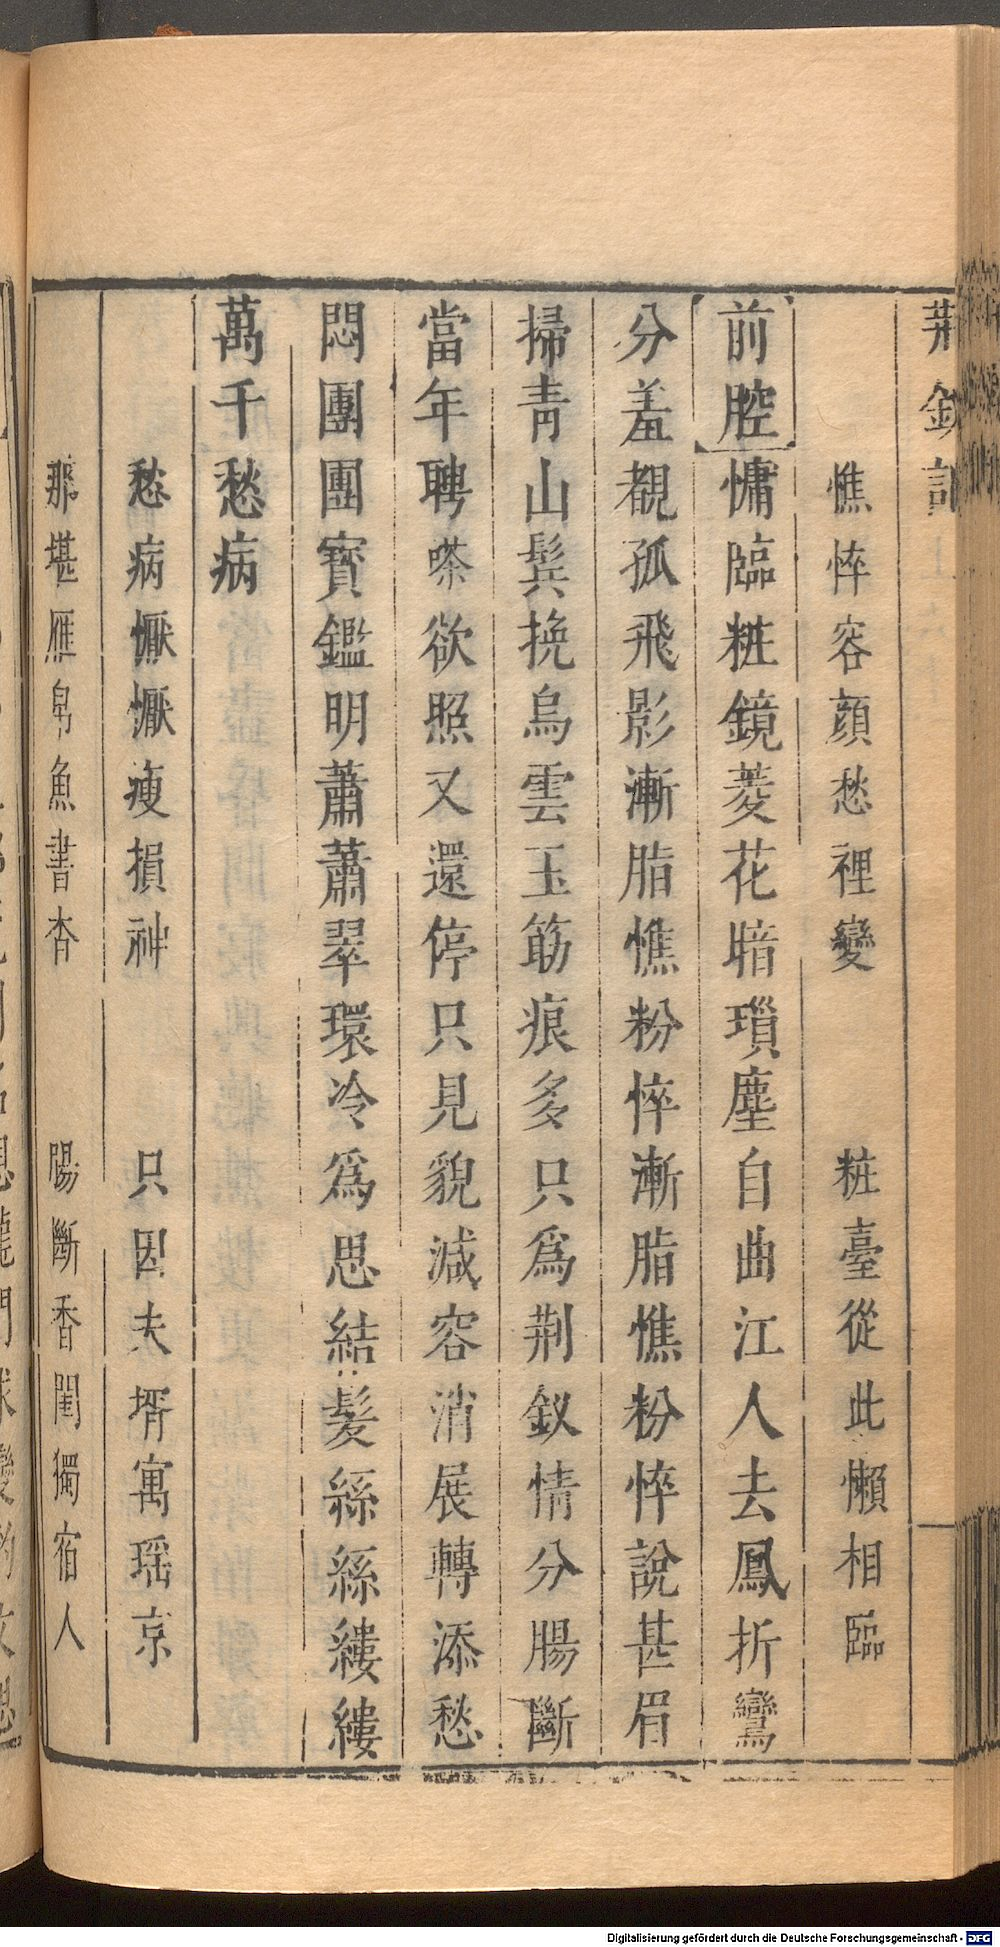 荆釵記
憔悴容顔愁裡變　粧臺從此懶相臨
前腔慵臨粧鏡菱花暗瑣塵自曲江人去鳳折鸞
分羞覩孤飛影漸脂憔粉悴漸脂憔粉悴說甚眉
掃青山鬂挽烏雲玉筯痕多只爲荆釵情分腸斷
當年聘嗏欲照又還停只見貌減容消展轉添愁
悶團團寶鑑明蕭蕭翠環冷爲思結髪絲絲縷縷
萬千愁病
愁病懨懨瘦損神　只因夫壻寓瑶京
那堪雁帛魚書杳　腸斷香閨獨宿人
Digitalisierung gefördert durch die Deutsche Forschungsgemeinschaft - DFG